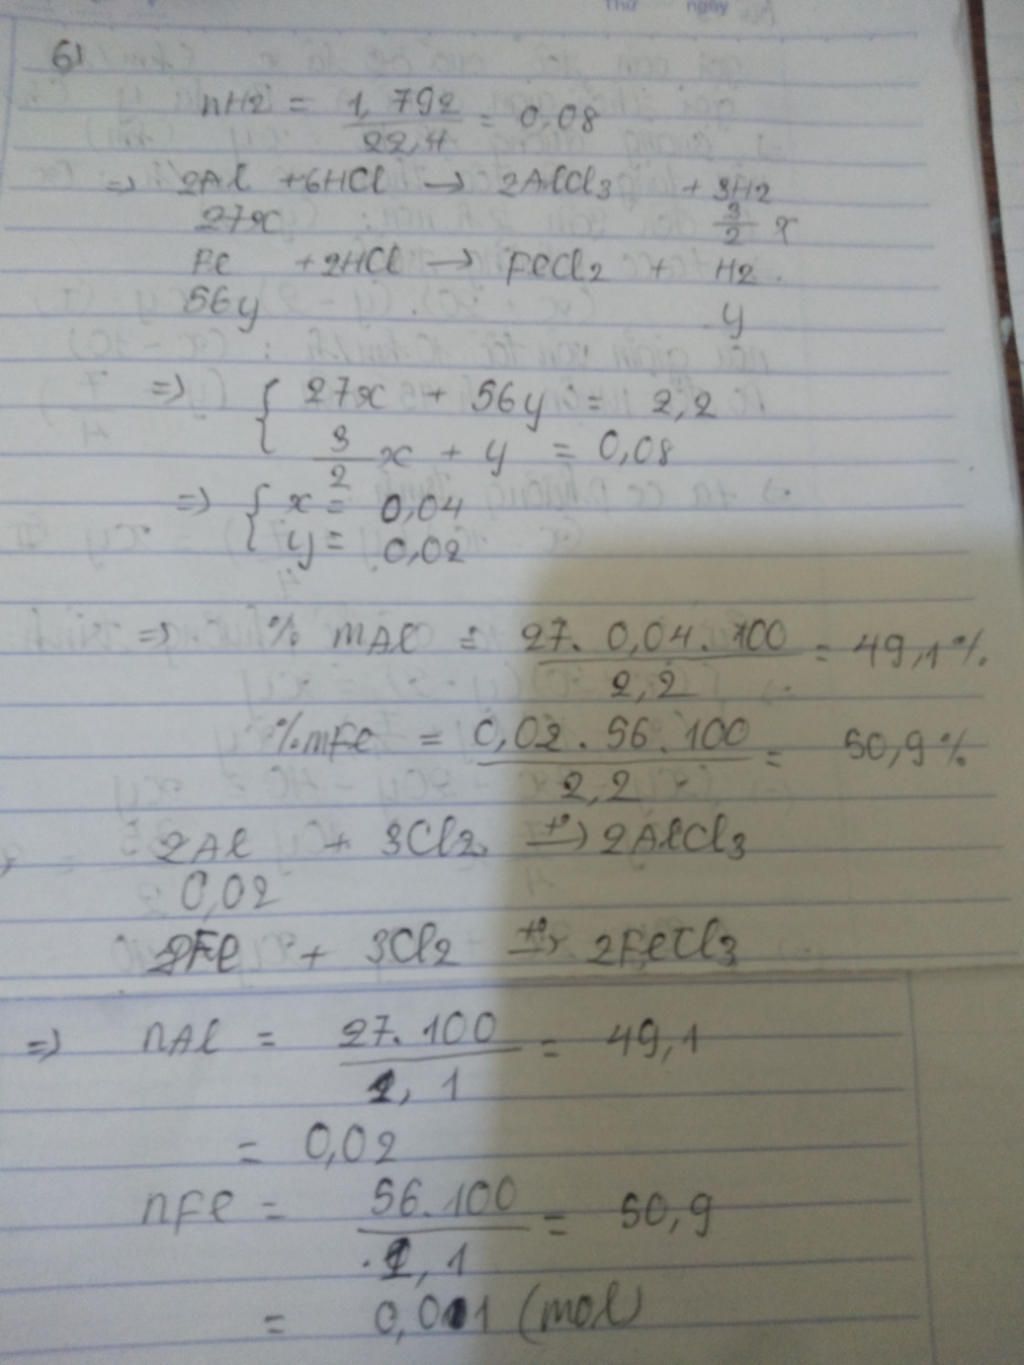 Thứ ngày
6)
nH2 = 1,792 / 22,4 = 0,08
=> 2Al + 6HCl -> 2AlCl3 + 3H2
27x 3/2 x
Fe + 2HCl -> FeCl2 + H2
56y y
=> { 27x + 56y = 2,2
3/2 x + y = 0,08
=> { x = 0,04
y = 0,02
=> % mAl = 27. 0,04. 100 / 2,2 = 49,1%
%mFe = 0,02. 56. 100 / 2,2 = 50,9%
2Al + 3Cl2 t°-> 2AlCl3
0,02
2Fe + 3Cl2 t°-> 2FeCl3
=> nAl = 27. 100 / 1,1 = 49,1
= 0,02
nFe = 56. 100 / 1,1 = 50,9
= 0,01 (mol)